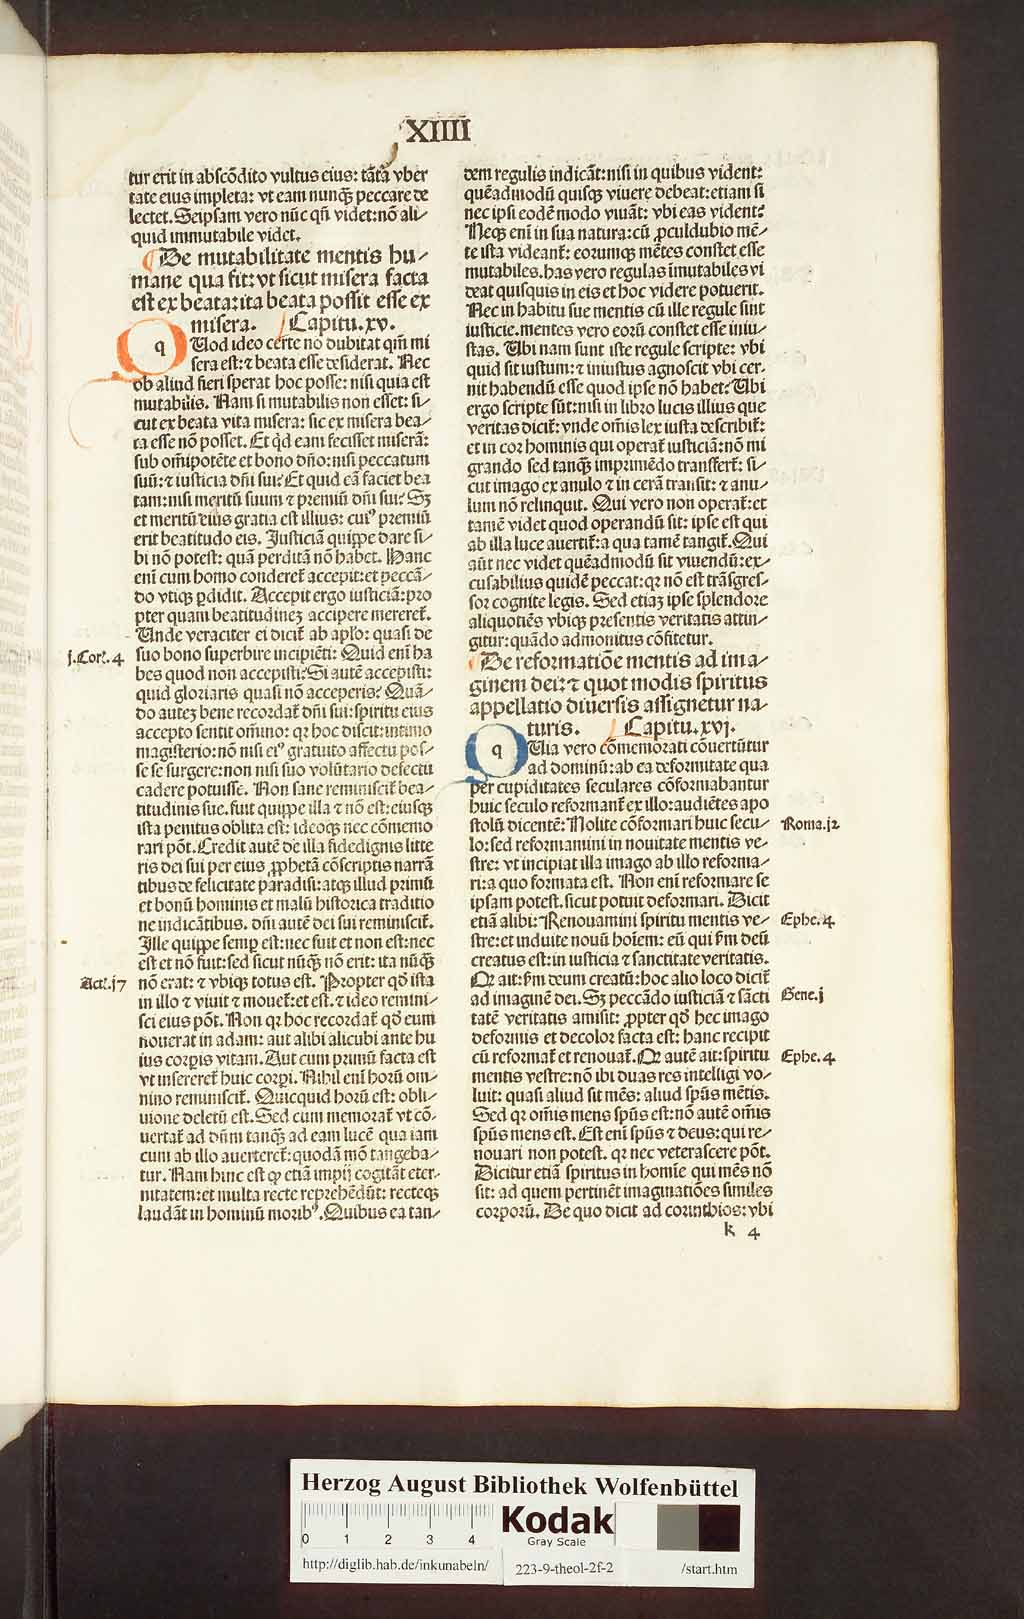 XIIII
tur erit in abscõdito vultus eius: tãta vber
tate eius impleta: vt eam nunqȝ peccare de
lectet. Seipsam vero nũc qñ videt: nõ ali⸗
quid immutabile videt.
¶ De mutabilitate mentis hu⸗
mane qua fit: vt sicut misera facta
est ex beata: ita beata possit esse ex
misera. Capitu. xv.
q Uod ideo certe nõ dubitat qm̃ mi
sera est: ⁊ beata esse desiderat. Nec
ob aliud fieri sperat hoc posse: nisi quia est
mutabilis. Nam si mutabilis non esset: si⸗
cut ex beata vita misera: sic ex misera bea⸗
ta esse nõ posset. Et qd̉ eam fecisset miserã:
sub om̃ipotẽte et bono dño: nisi peccatum
suũ: ⁊ iusticia dñi sui? Et quid eã faciet bea
tam: nisi meritũ suum ⁊ premiũ dñi sui? Sȝ
et meritũ eius gratia est illius: cuiꝰ premiũ
erit beatitudo eis. Justiciã quippe dare si⸗
bi nõ potest: quã perditã nõ habet. Hanc
enĩ cum homo conderet̃ accepit: et peccã⸗
do vtiqȝ ꝑdidit. Accepit ergo iusticiã: pro
pter quam beatitudineȝ accipere mereret̃.
Unde veraciter ei dicit̃ ab aplo: quasi de
j. Cor. 4
suo bono superbire incipiẽti: Quid enĩ ha
bes quod non accepisti? Si autẽ accepisti:
quid gloriaris quasi nõ acceperis? Quã⸗
do auteȝ bene recordat̃ dñi sui: spiritu eius
accepto sentit om̃ino: qꝛ hoc discit: intimo
magisterio: nõ nisi eiꝰ gratuito affectu pos⸗
se se surgere: non nisi suo volũtario defectu
cadere potuisse. Non sane reminiscit̃ bea⸗
titudinis sue. fuit quippe illa ⁊ nõ est: eiusqȝ
ista penitus oblita est: ideoqȝ nec cõmemo
rari põt. Credit autẽ de illa fidedignis litte
ris dei sui per eius ꝓphetã cõscriptis narrã
tibus de felicitate paradisi: atqȝ illud primũ
et bonũ hominis et malũ historica traditio
ne indicãtibus. dñi autẽ dei sui reminiscit̃.
Ille quippe semꝑ est: nec fuit et non est: nec
est et nõ fuit: sed sicut nũqȝ nõ erit: ita nũqȝ
Act. j7
nõ erat: ⁊ vbiqȝ totus est. Propter qd̉ ista
in illo ⁊ viuit ⁊ mouet̃: et est. ⁊ ideo remini⸗
sci eius põt. Non qꝛ hoc recordat̃ qd̉ eum
nouerat in adam: aut alibi alicubi ante hu
ius corꝑis vitam. Aut cum primũ facta est
vt insereret̃ huic corꝑi. Nihil enĩ horũ om⸗
nino reminiscit̃. Quicquid horũ est: obli⸗
uione deletũ est. Sed cum memorat̃ vt cõ⸗
uertat̃ ad dñm tanqȝ ad eam lucẽ qua iam
cum ab illo auerteret̃: quodã mõ tangeba⸗
tur. Nam hinc est ꝙ etiã impij cogitãt eter⸗
nitatem: et multa recte reprehẽdũt: recteqȝ
laudãt in hominũ moribꝰ. Quibus ea tan⸗
dem regulis indicãt: nisi in quibus vident:
quẽadmodũ quisqȝ viuere debeat: etiam si
nec ipsi eodẽ modo viuãt: vbi eas vident?
Neqȝ enĩ in sua natura: cũ ꝓculdubio mẽ⸗
te ista videant̃: eorumqȝ mẽtes constet esse
mutabiles. has vero regulas ĩmutabiles vi
deat quisquis in eis et hoc videre potuerit.
Nec in habitu sue mentis cũ ille regule sint
iusticie. mentes vero eorũ constet esse iniu⸗
stas. Ubi nam sunt iste regule scripte: vbi
quid sit iustum: ⁊ iniustus agnoscit vbi cer⸗
nit habendũ esse quod ipse nõ habet? Ubi
ergo scripte sũt: nisi in libro lucis illius que
veritas dicit̃: vnde om̃is lex iusta describit̃:
et in cor hominis qui operat̃ iusticiã: nõ mi
grando sed tanqȝ imprimẽdo transfert̃: si⸗
cut imago ex anulo ⁊ in cerã transit: ⁊ anu⸗
lum nõ relinquit. Qui vero non operat̃: et
tamẽ videt quod operandũ sit: ipse est qui
ab illa luce auertit̃: a qua tamẽ tangit̃. Qui
aũt nec videt quẽadmodũ sit viuendũ: ex⸗
cusabilius quidẽ peccat: qꝛ nõ est trãsgres⸗
sor cognite legis. Sed etiaȝ ipse splendore
aliquotiẽs vbiqȝ presentis veritatis attin⸗
gitur: quãdo admonitus cõfitetur.
¶ De reformatiõe mentis ad ima⸗
ginem dei: ⁊ quot modis spiritus
appellatio diuersis assignetur na⸗
turis. Capitu. xvj.
q Uia vero cõmemorati cõuertũtur
ad dominũ: ab ea deformitate qua
per cupiditates seculares cõformabantur
huic seculo reformant̃ ex illo: audiẽtes apo
stolũ dicentẽ: Nolite cõformari huic secu⸗
Roma. j2
lo: sed reformamini in nouitate mentis ve⸗
stre: vt incipiat illa imago ab illo reforma⸗
ri: a quo formata est. Non enĩ reformare se
ipsam potest. sicut potuit deformari. Dicit
etiã alibi: Renouamini spiritu mentis ve⸗
Ephe. 4
stre: et induite nouũ hoĩem: eũ qui ẜm deũ
creatus est: in iusticia ⁊ sanctitate veritatis.
Qꝛ ait: ẜm deum creatũ: hoc alio loco dicit̃
ad imaginẽ dei. Sȝ peccãdo iusticiã ⁊ sãcti
Gene. j
tatẽ veritatis amisit: ꝓpter qd̉ hec imago
deformis et decolor facta est: hanc recipit
cũ reformat̃ et renouat̃. Qꝛ autẽ ait: spiritu
Ephe. 4
mentis vestre: nõ ibi duas res intelligi vo⸗
luit: quasi aliud sit mẽs: aliud spũs mẽtis.
Sed qꝛ om̃is mens spũs est: nõ autẽ om̃is
spũs mens est. Est enĩ spũs ⁊ deus: qui re⸗
nouari non potest. qꝛ nec veterascere põt.
Dicitur etiã spiritus in homĩe qui mẽs nõ
sit: ad quem pertinẽt imaginatiões similes
corporũ. De quo dicit ad corinthios: vbi
k 4
Herzog August Bibliothek Wolfenbüttel
0 1 2 3 4
Kodak
Gray Scale
http://diglib.hab.de/inkunabeln/
223-9-theol-2f-2
/start.htm